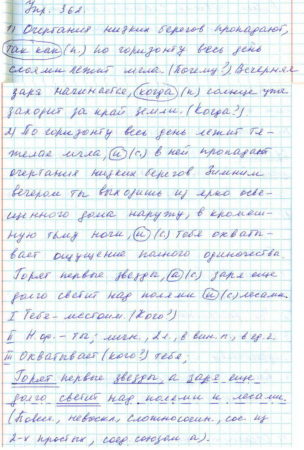 Упр. 362.
1) Очертания низких берегов пропадают,
так как (п.) по горизонту весь день
слоями лежит мгла. (Почему?) Вечерняя
заря начинается, когда (п) солнце уже
заходит за край земли. (Когда?)
2) По горизонту весь день лежит тя-
желая мгла, и (с) в ней пропадают
очертания низких берегов. Зимним
вечером ты выходишь из ярко осве-
щенного дома наружу, в кромеш-
ную тьму ночи, и (с) тебя охваты-
вает ощущение полного одиночества.
Горят первые звезды, а (с) заря еще
долго светит над полями и (с) лесами.
I Тебя - местоим. (Кого?)
II Н.ф. - ты; личн., 2л., в вин. п., в ед. ч.
III Охватывает (кого?) тебя;
Горят первые звезды, а заря еще
долго светит над полями и лесами.
(Повес., невоскл., сложносочин., сос. из
2-х простых, соед. союзом а).